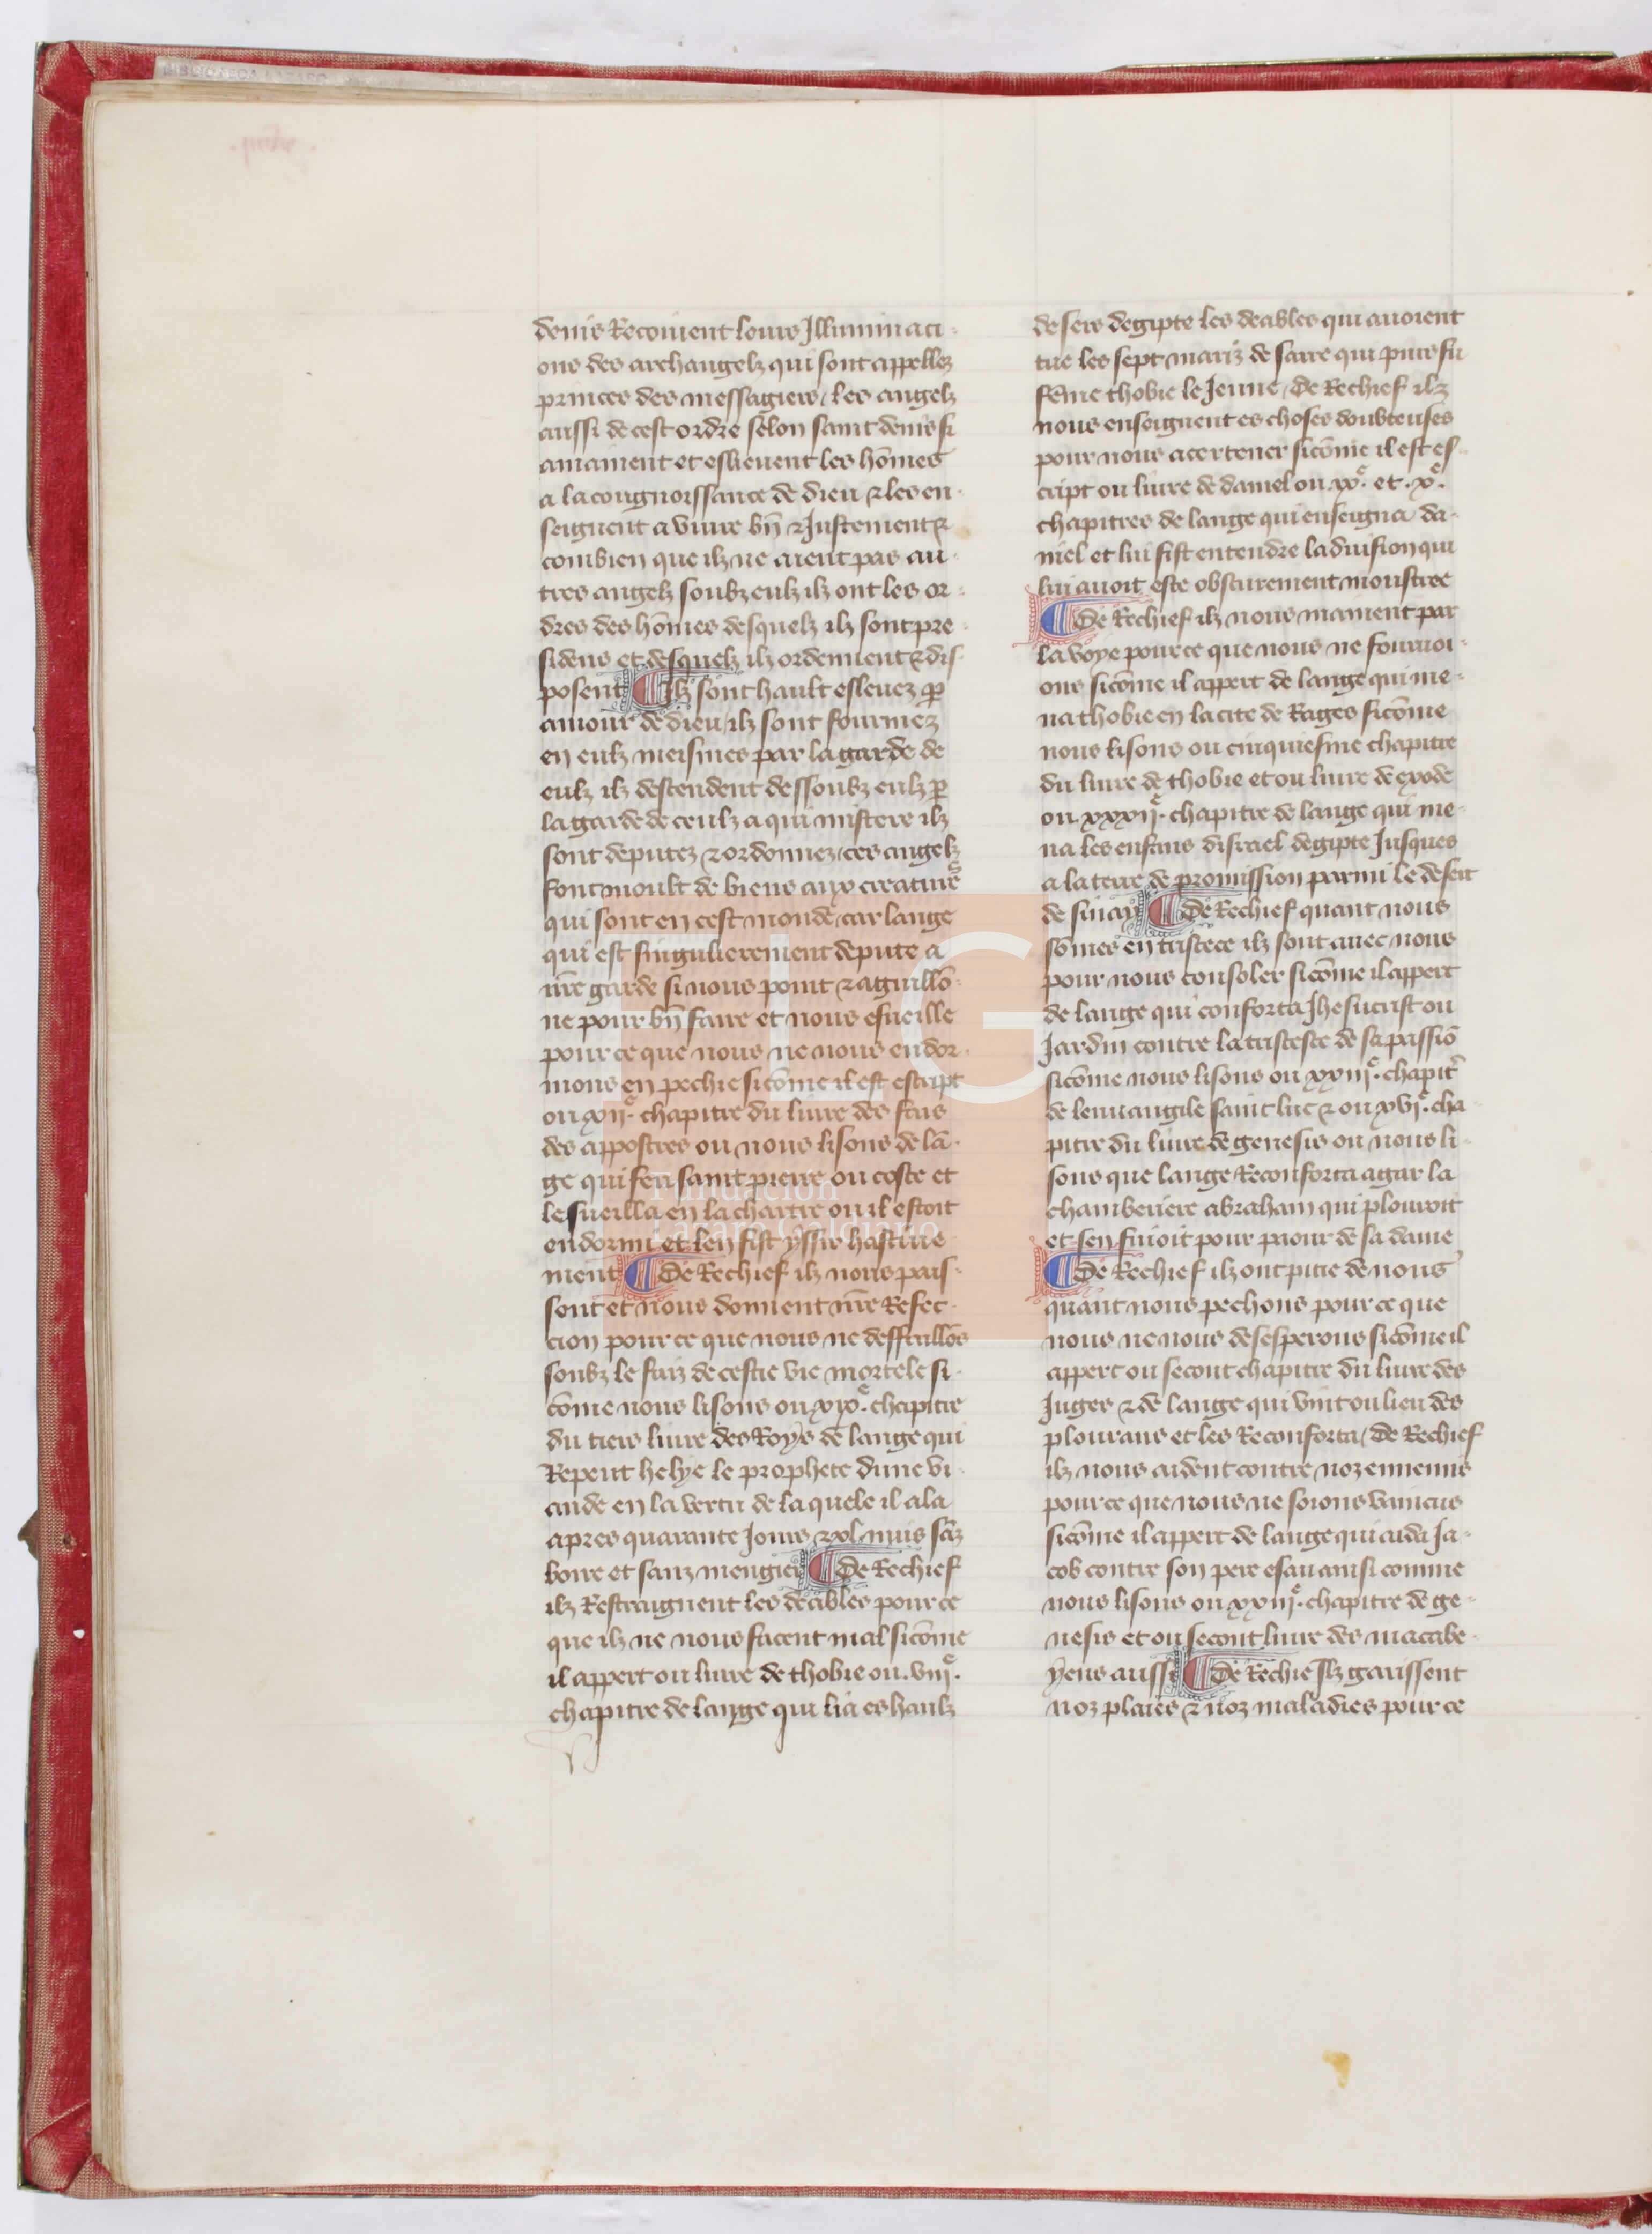 denis Recoiuent leurs Illuminaci-
ons des archangelz qui sont appellez
princes des messagiers / les angelz
aussi de cest ordre selon saint denis si
amainent et eslieuent les hõmes
a la congnoissance de dieu ⁊ les en-
seignent a viure bñ ⁊ Justement ⁊
combien que ilz ne aient pas au-
tres angelz soubz eulz ilz ont les or-
dres des hõmes desquelz ilz sont pre-
sidens et desquelz ilz ordennent ⁊ dis-
posent ¶ Ilz sont hault esleuez ꝑ
amour de dieu / ilz sont fourmez
en eulz meismes par la garde de
eulz ilz descendent dessoubz eulz ꝑ
la garde de ceulz a qui mistere ilz
sont deputez ⁊ ordonnez / ces angelz
font moult de biens aux creatures
qui sont en cest monde car lange
qui est singulierement depute a
nr̃e garde si nous point ⁊ aguillõ-
ne pour bñ faire et nous esueille
pour ce que nous ne nous endor-
mons en pechie sicõme il est escript
ou xijᵉ. chapitre du liure des fais
des appostres ou nous lisons de lã-
ge qui feri saint pierre ou coste et
lesueilla en la chartre ou il estoit
endormi et len fist yssir hastiue-
ment ¶ De Rechief ilz nous pais-
sent et nous donnent nr̃e Refec-
cion pour ce que nous ne deffaillõs
soubz le faiz de ceste vie mortele si-
cõme nous lisons ou xixᵉ. chapitre
du tiers liure des Roys de lange qui
Repeut helye le prophete dune vi-
ande en la vertu de laquele il ala
apres quarante Jours ⁊ xl. nuis sãz
boire et sanz mengier ¶ De Rechief
ilz Restraignent les deables pour ce
que ilz ne nous facent mal sicõme
il appert ou liure de thobie ou .viijᵉ.
chapitre de lange qui lia es haulz
desers degipte les deables qui auoient
tue les sept mariz de sarre qui puis fu
fẽme thobie le Jeune / De Rechief ilz
nous enseignent es choses doubteuses
pour nous acertener sicõme il est es-
cript ou liure de daniel ou .ixᵉ. et .xᵉ.
chapitres de lange qui enseigna da-
niel et lui fist entendre la diuision qui
lui auoit este obscurement moustree
¶ De Rechief ilz nous mainent par
la voye pour ce que nous ne fouruoi-
ons sicõme il appert de lange qui me-
na thobie en la cite de Rages sicõme
nous lisons ou cinquiesme chapitre
du liure de thobie et ou liure de exode
ou xxxijᵉ. chapitre de lange qui me-
na les enfans disrael degipte Jusques
a la terre de promission parmi le desert
de sinay ¶ De Rechief quant nous
sõmes en tristece ilz sont auec nous
pour nous consoler sicõme il appert
de lange qui conforta Jhesucrist ou
Jardin contre la tristesce de sa passiõ
sicõme nous lisons ou xxiijᵉ. chapitr̃
de leuuangile saint luc ⁊ ou xviᵉ. cha-
pitre du liure de genesis ou nous li-
sons que lange Reconforta agar la
chamberiere abraham qui plouroit
et sen fuioit pour paour de sa dame
¶ De Rechief ilz ont pitie de nous
quant nous pechons pour ce que
nous ne nous desesperons sicõme il
appert ou secont chapitre du liure des
Juges ⁊ de lange qui vint ou lieu des
plourans et les Reconforta / De Rechief
ilz nous aident contre noz ennemis
pour ce que nous ne soions vaincus
sicõme il appert de lange qui aida Ja-
cob contre son pere esau ainsi comme
nous lisons ou xxiijᵉ. chapitre de ge-
nesis et ou secont liure des macabe-
yens aussi ¶ De Rechief Ilz garissent
noz plaies ⁊ noz maladies pour ce
LG
Fundación
Lázaro Galdiano